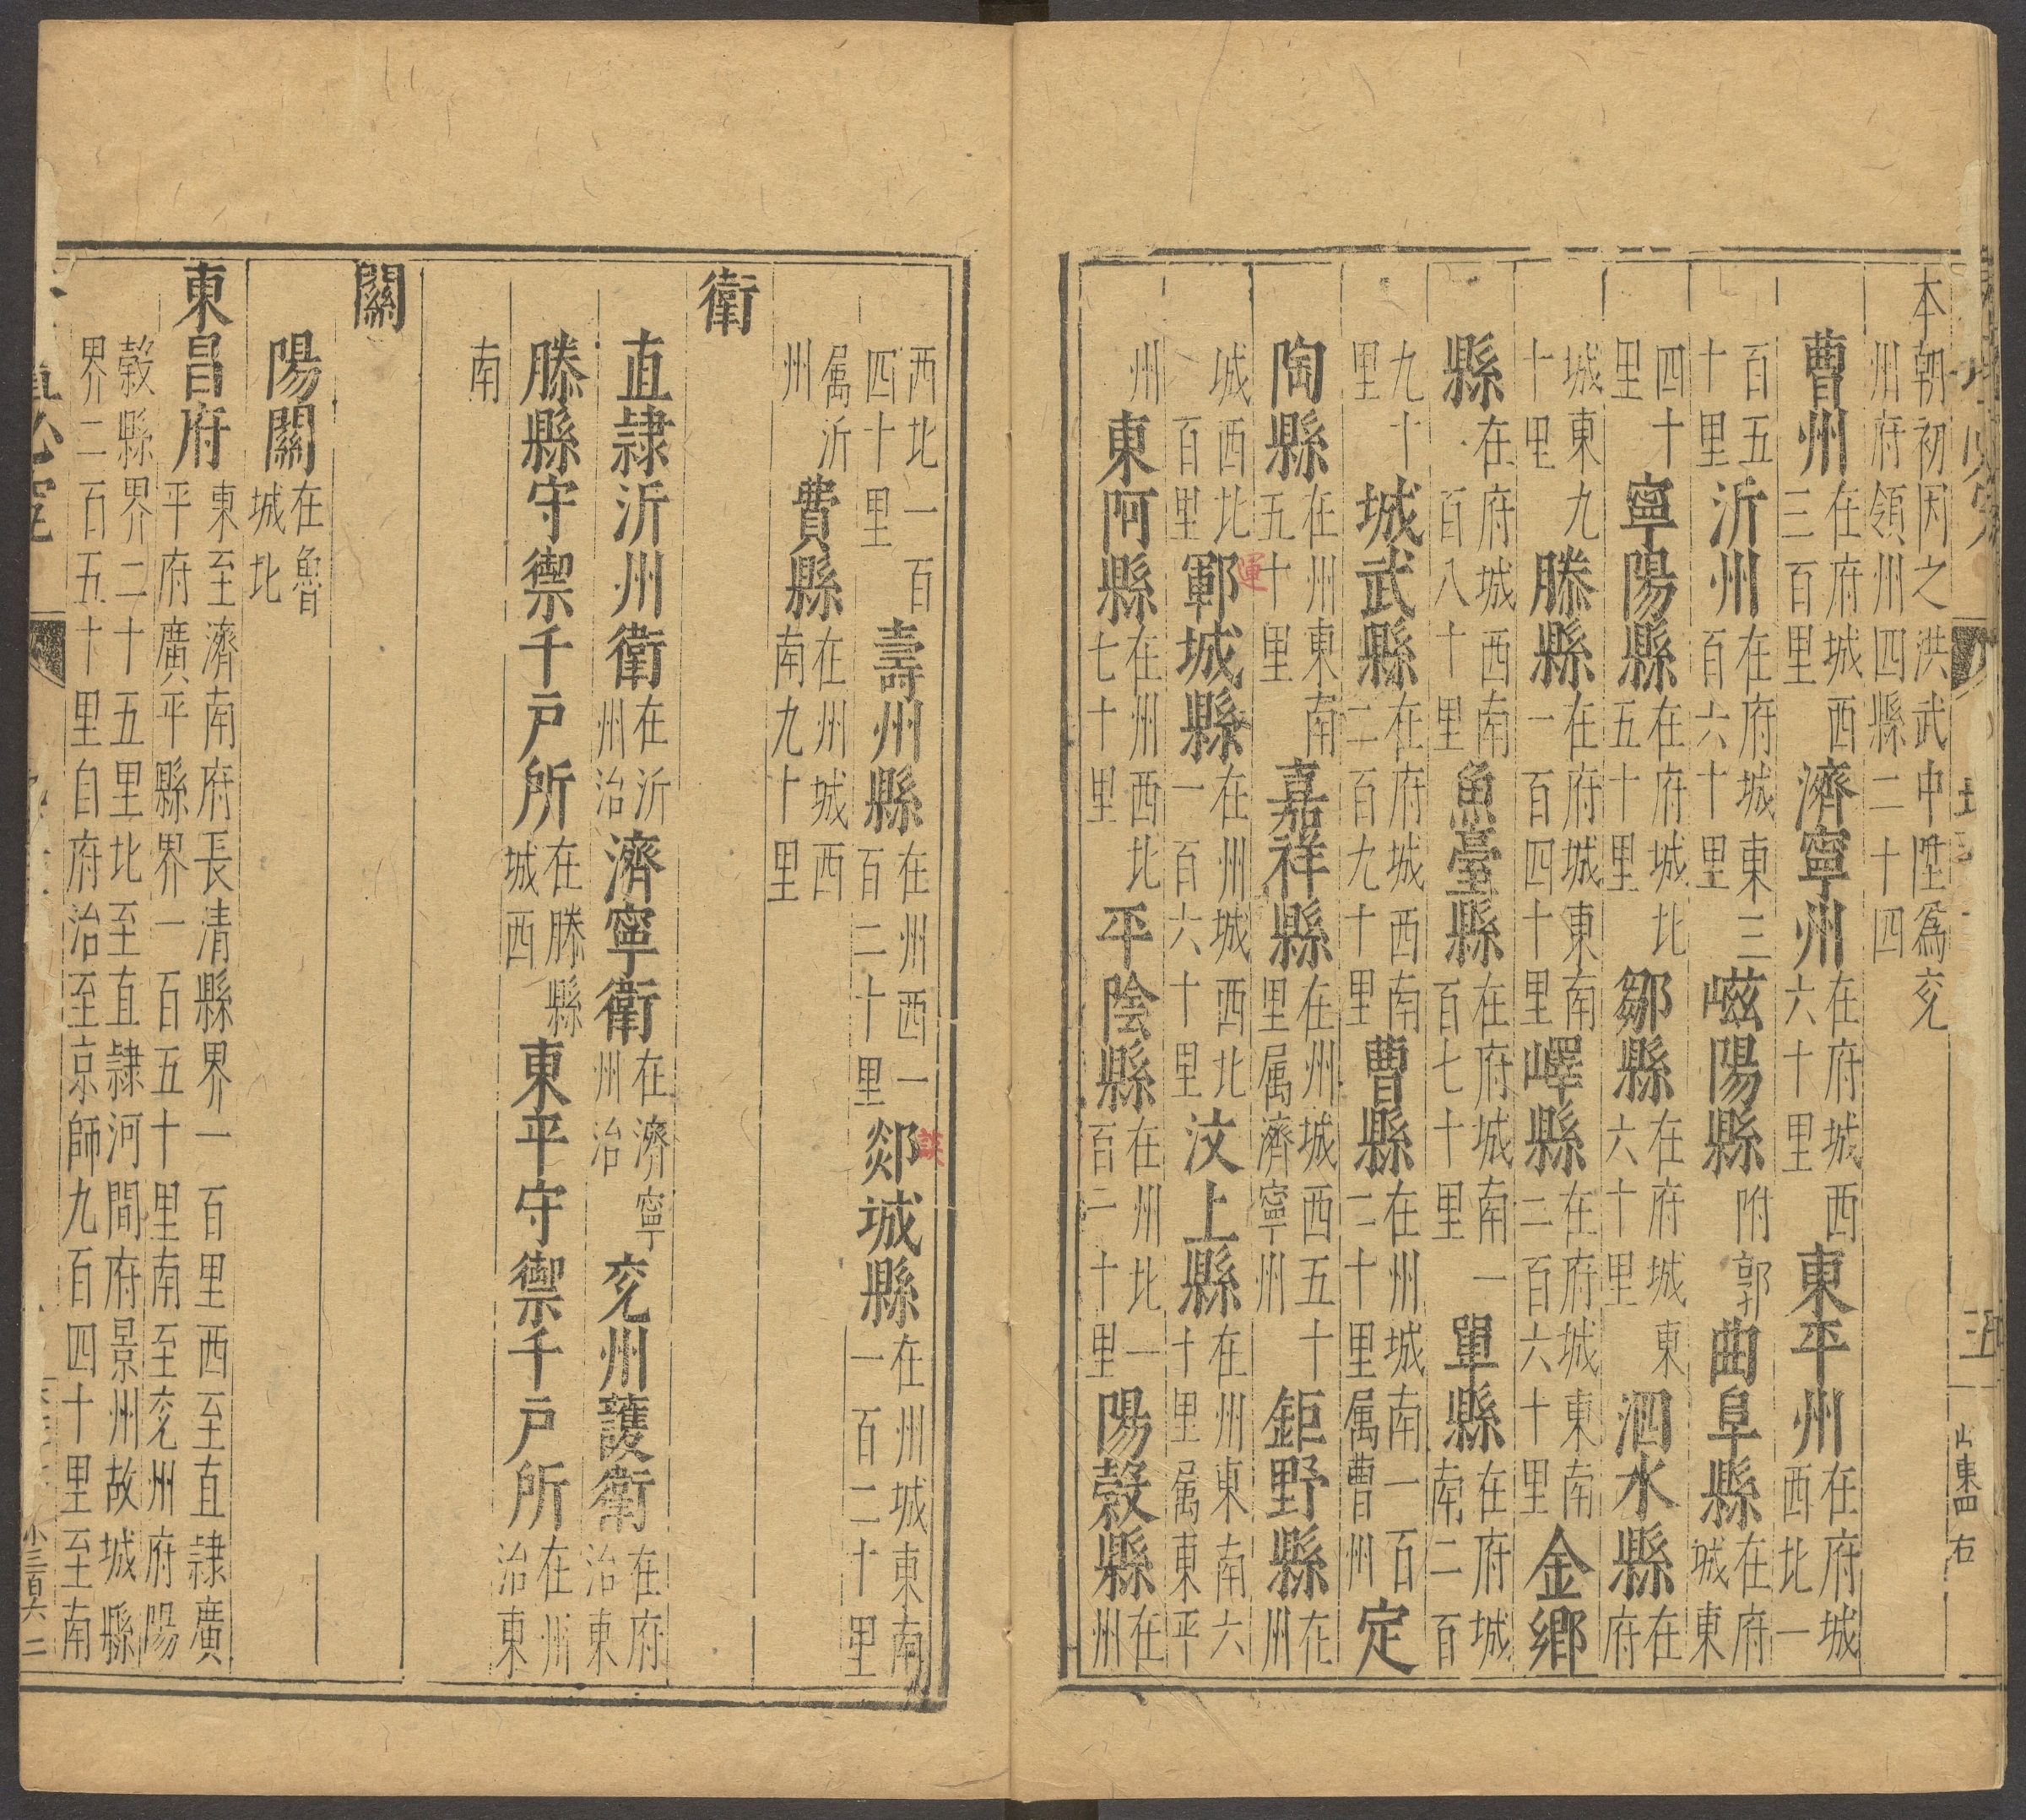 本朝初因之洪武中陞爲兗
州府領州四縣二十四
曹州在府城西三百里濟寧州在府城西六十里東平州在府城西北一
百五十里沂州在府城東三百六十里嵫陽縣附郭曲阜縣在府城東
四十里寧陽縣在府城北五十里鄒縣在府城東六十里泗水縣在府
城東九十里滕縣在府城東南一百四十里嶧縣在府城東南二百六十里金鄉
縣在府城西南百八十里魚臺縣在府城南一百七十里單縣在府城南二百
九十里城武縣在府城西南二百九十里曹縣在州城南一百二十里属曹州定
陶縣在州東南五十里嘉祥縣在州城西五十里属濟寧州鉅野縣在州
城西北百里鄆城縣在州城西北一百六十里汶上縣在州東南六十里属東平
運
州東阿縣在州西北七十里平陰縣在州北一百二十里陽穀縣在州
五
山東四
右
西北一百四十里壽州縣在州西一百二十里郯城縣在州城東南一百二十里
談
属沂州費縣在州城西南九十里
衛
直隷沂州衛在沂州治濟寧衛在濟寧州治兗州護衛在府治東
滕縣守禦千戸所在滕縣城西東平守禦千戸所在州治東
南
關
陽關在魯城北
東昌府東至濟南府長清縣界一百里西至直隷廣
平府廣平縣界一百五十里南至兗州府陽
穀縣界二十五里北至直隷河間府景州故城縣
界二百五十里自府治至京師九百四十里至南